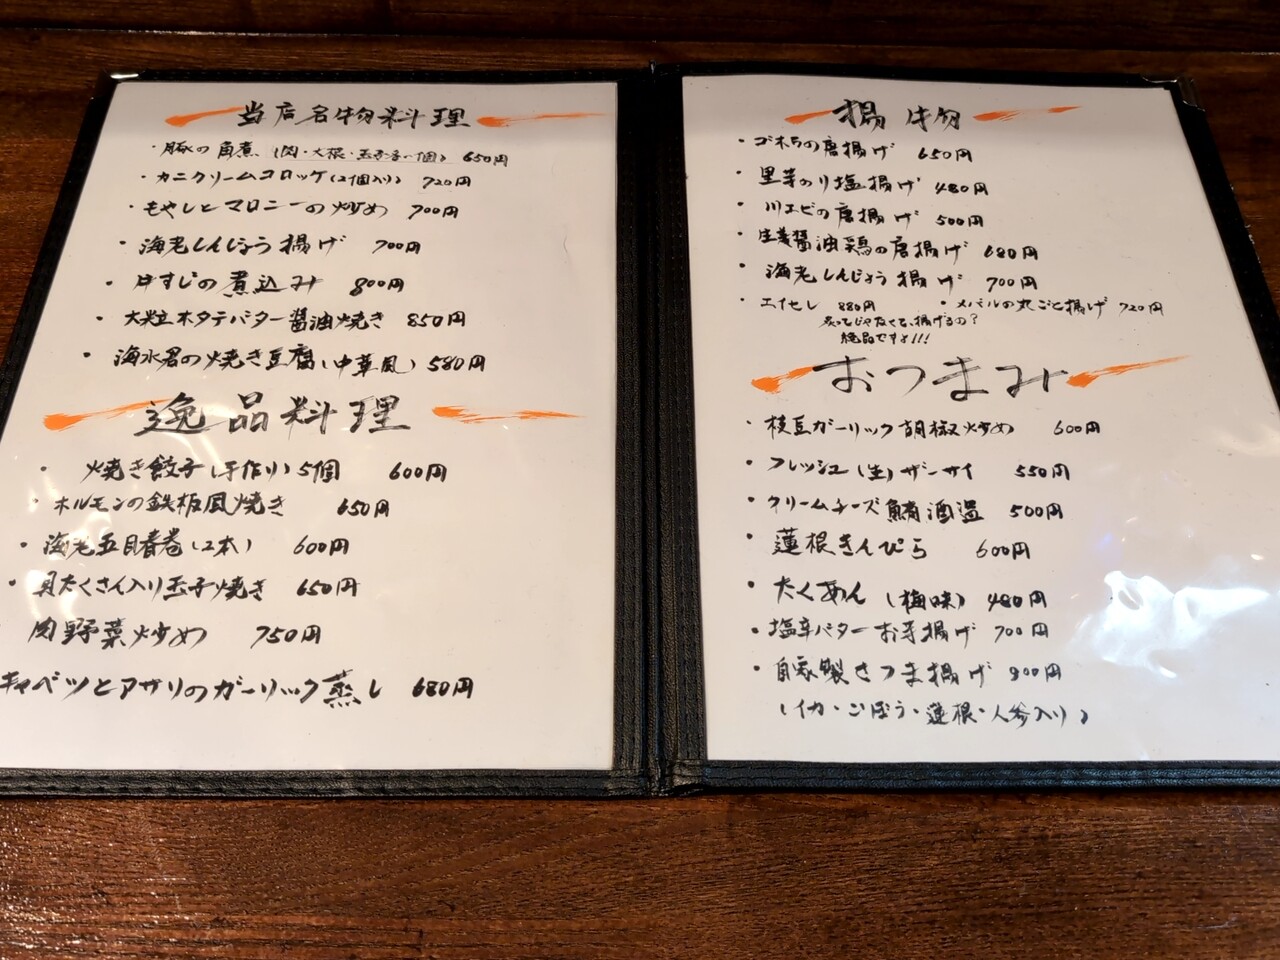 当店名物料理
・豚の角煮(肉・大根・玉子各一個) 650円
・カニクリームコロッケ(2個入り) 720円
・もやしとマロニーの炒め 700円
・海老しんじょう揚げ 700円
・牛すじの煮込み 800円
・大粒ホタテバター醤油焼き 850円
・海水君の焼き豆腐(中華風) 580円
逸品料理
・焼き餃子(手作り)5個 600円
・ホルモンの鉄板風焼き 650円
・海老五目春巻(2本) 600円
・具たくさん入り玉子焼き 650円
肉野菜炒め 750円
キャベツとアサリのガーリック蒸し 680円
揚物
・ゴボウの唐揚げ 650円
・里芋のり塩揚げ 480円
・川エビの唐揚げ 500円
・生姜醤油鶏の唐揚げ 680円
・海老しんじょう揚げ 700円
・エイヒレ 880円 ・メバルの丸ごと揚げ 720円
炙ってじゃなくて、揚げるの?
絶品ですよ!!!
おつまみ
・枝豆ガーリック胡椒炒め 600円
・フレッシュ(生)ザーサイ 550円
・クリームチーズ鯖酒盗 500円
・蓮根きんぴら 600円
・たくあん(梅味) 480円
・塩辛バターお芋揚げ 700円
・自家製さつま揚げ 900円
(イカ・ごぼう・蓮根・人参入り)